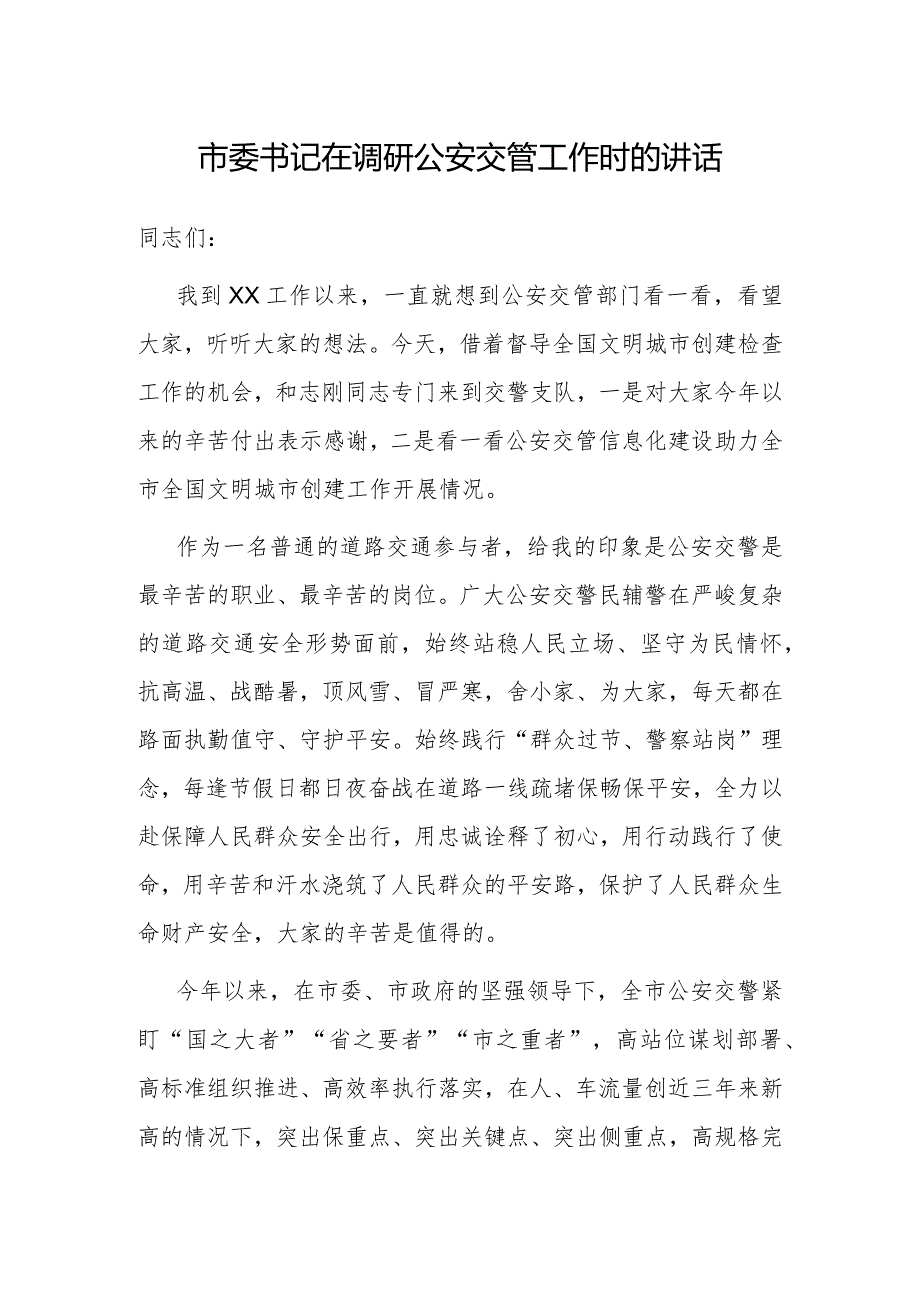 市委书记在调研公安交管工作时的讲话
同志们：
我到XX工作以来，一直就想到公安交管部门看一看，看望
大家，听听大家的想法。今天，借着督导全国文明城市创建检查
工作的机会，和志刚同志专门来到交警支队，一是对大家今年以
来的辛苦付出表示感谢，二是看一看公安交管信息化建设助力全
市全国文明城市创建工作开展情况。
作为一名普通的道路交通参与者，给我的印象是公安交警是
最辛苦的职业、最辛苦的岗位。广大公安交警民辅警在严峻复杂
的道路交通安全形势面前，始终站稳人民立场、坚守为民情怀，
抗高温、战酷暑，顶风雪、冒严寒，舍小家、为大家，每天都在
路面执勤值守、守护平安。始终践行“群众过节、警察站岗”理
念，每逢节假日都日夜奋战在道路一线疏堵保畅保平安，全力以
赴保障人民群众安全出行，用忠诚诠释了初心，用行动践行了使
命，用辛苦和汗水浇筑了人民群众的平安路，保护了人民群众生
命财产安全，大家的辛苦是值得的。
今年以来，在市委、市政府的坚强领导下，全市公安交警紧
盯“国之大者”“省之要者”“市之重者”，高站位谋划部署、
高标准组织推进、高效率执行落实，在人、车流量创近三年来新
高的情况下，突出保重点、突出关键点、突出侧重点，高规格完